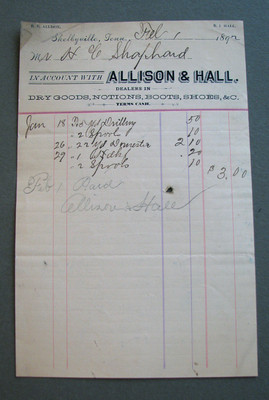 Shelbyville, Tenn. Feb. 1 1892
Mr H C Shophard
IN ACCOUNT WITH ALLISON & HALL,
DEALERS IN
DRY GOODS, NOTIONS, BOOTS, SHOES, &C.
TERMS CASH.
Jan 18 Drilling 50
" 2 Spools 10
26 2 10
29 " 1 20
" 2 Spools 10
$3.00
Feb 1 Paid
Allison & Hall